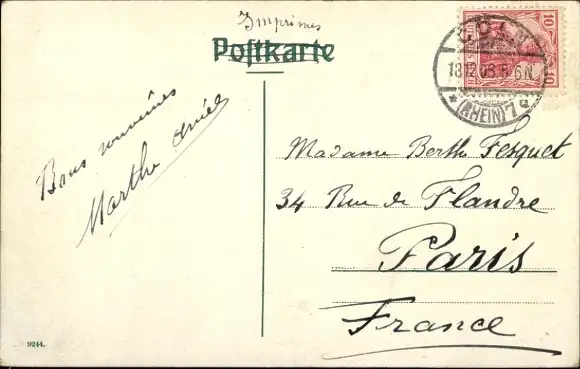 Imprimes
Postkarte
10
10
CÖLN
18.12.05. 5-6N.
* (RHEIN) 1 d
Bons souvenirs
Marthe
Madame Berthe Fesquet
34 Rue de Flandre
Paris
France
9244.